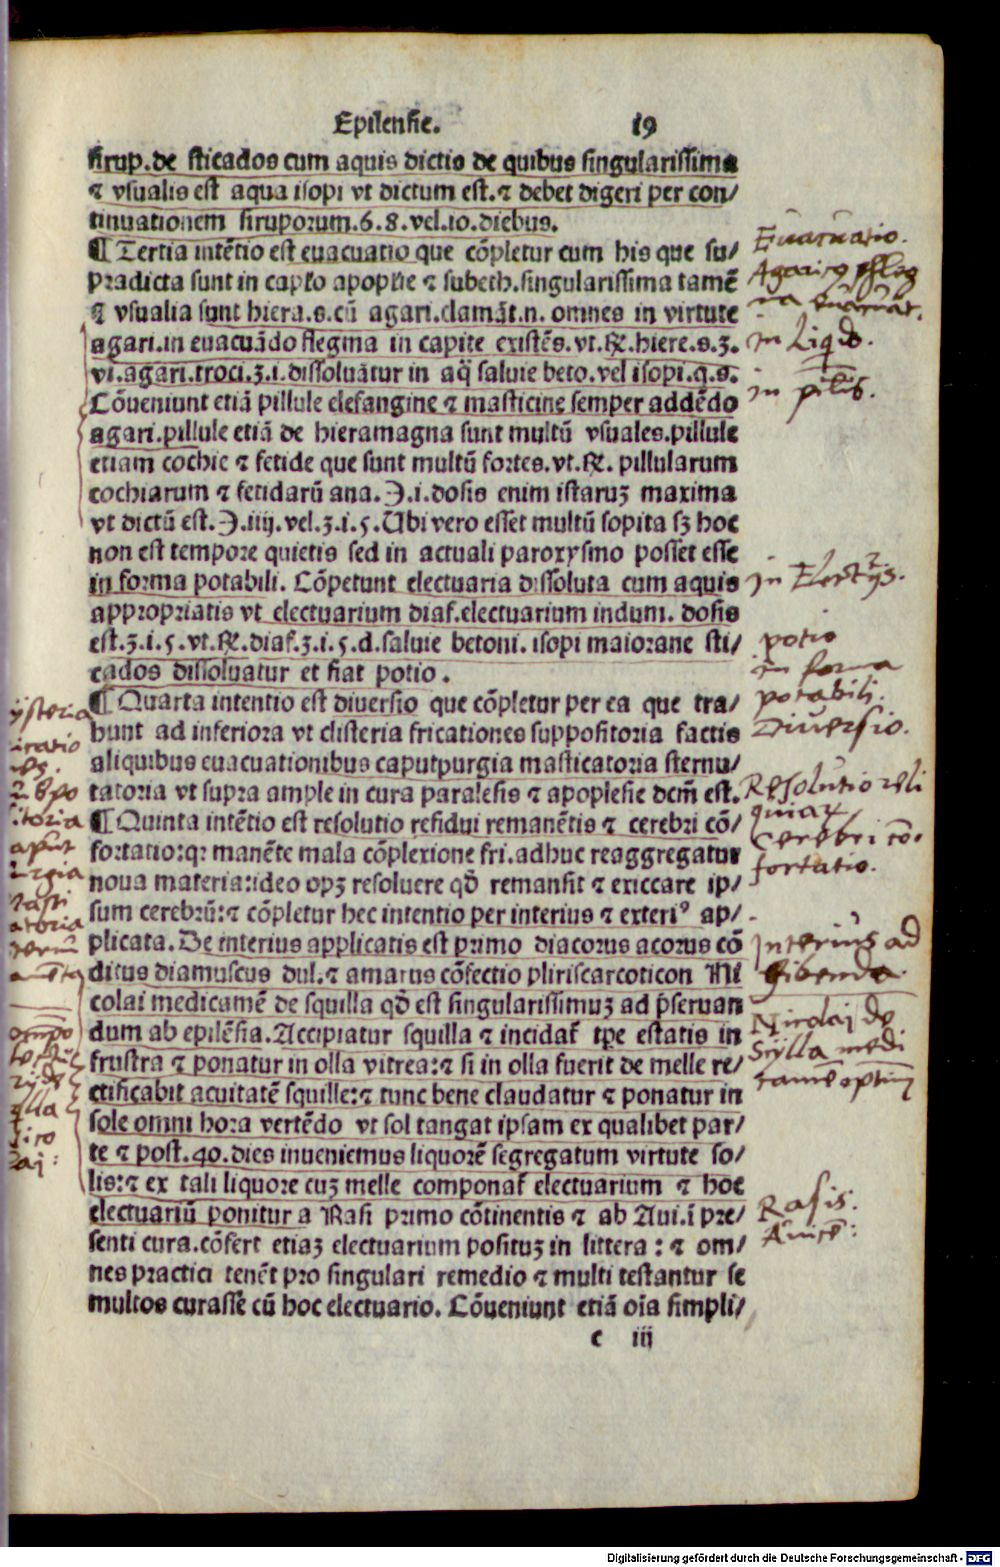 Epilensie. 19
sirup.de sticados cum aquis dictis de quibus singularissima
⁊ vsualis est aqua isopi vt dictum est.⁊ debet digeri per con/
tinuationem siruporum.6.8.vel.10.diebus.
¶ Tertia intẽtio est euacuatio que cõpletur cum his que su/
pradicta sunt in capło apoplẽ ⁊ subeth.singularissima tamẽ
⁊ vsualia sunt hiera.s.cũ agari.clamãt.n. omnes in virtute
agari.in euacuãdo flegma in capite existẽs.vt.℞.hiere.s.ʒ.
vi.agari.troci.ʒ.i.dissoluãtur in aq̃ saluie beto.vel isopi.q.s.
Cõueniunt etiã pillule elefangine ⁊ masticine semper addẽdo
agari.pillule etiã de hieramagna sunt multũ vsuales.pillule
etiam cochie ⁊ fetide que sunt multũ fortes.vt.℞. pillularum
cochiarum ⁊ fetidarũ ana.℈.i.dosis enim istaruʒ maxima
vt dictũ est.℈.iiij.vel.ʒ.i.5.Ubi vero esset multũ sopita sʒ hoc
non est tempore quietis sed in actuali paroxysmo posset esse
in forma potabili. Cõpetunt electuaria dissoluta cum aquis
appropriatis vt electuarium diaf.electuarium indum. dosis
est.ʒ.i.5.vt.℞.diaf.ʒ.i.5.d.saluie betoni. isopi maiorane sti/
cados dissoluatur et fiat potio.
¶ Quarta intentio est diuersio que cõpletur per ea que tra/
hunt ad inferiora vt clisteria fricationes suppositoria factis
aliquibus euacuationibus caputpurgia masticatoria sternu/
tatoria vt supra ample in cura paralesis ⁊ apoplesie dcm̃ est.
¶ Quinta intẽtio est resolutio residui remanẽtis ⁊ cerebri cõ/
fortatio:qꝛ manẽte mala cõplexione fri.adhuc reaggregatur
noua materia:ideo opʒ resoluere qð remansit ⁊ exiccare ip/
sum cerebrũ:⁊ cõpletur hec intentio per interius ⁊ exteriꝰ ap/
plicata.De interius applicatis est primo diacorus acorus cõ
ditus diamuscus dul.⁊ amarus cõfectio pliriscarcoticon Ni
colai medicamẽ de squilla qð est singularissimuʒ ad p̃seruan
dum ab epilẽsia.Accipiatur squilla ⁊ incidat̃ tp̃e estatis in
frustra ⁊ ponatur in olla vitrea:⁊ si in olla fuerit de melle re/
ctificabit acuitatẽ squille:⁊ tunc bene claudatur ⁊ ponatur in
sole omni hora vertẽdo vt sol tangat ipsam ex qualibet par/
te ⁊ post.40.dies inueniemus liquorẽ segregatum virtute so/
lis:⁊ ex tali liquore cuʒ melle componat̃ electuarium ⁊ hoc
electuariũ ponitur a Rasi primo cõtinentis ⁊ ab Aui.ĩ pre/
senti cura.cõfert etiaʒ electuarium posituʒ in littera : ⁊ om/
nes practici tenẽt pro singulari remedio ⁊ multi testantur se
multos curasse cũ hoc electuario. Cõueniunt etiã oĩa simpli/
c iij
Euacuatio.
Agaricꝰ phleg
ma euacuat.
in Liqdo.
in pilis.
in Electrijs.
potio
in forma
potabili.
Diuersio.
Resolutio reli
quiaꝝ
Cerebri cõ-
fortatio.
Interius ad
hibenda.
Nicolaj de
Scylla medi
camẽ optimũ
Rasis.
Auicẽ:
Digitalisierung gefördert durch die Deutsche Forschungsgemeinschaft - DFG